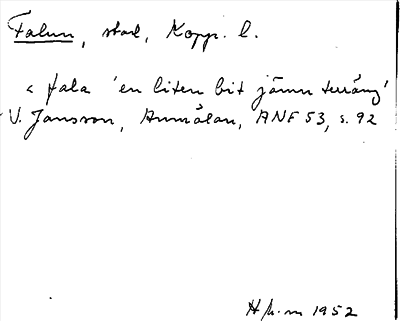 Falun, stad, Kopp. l.
< fala 'en liten bit jämn terräng'
V. Jansson, Anmälan, ANF 53, s. 92
1952